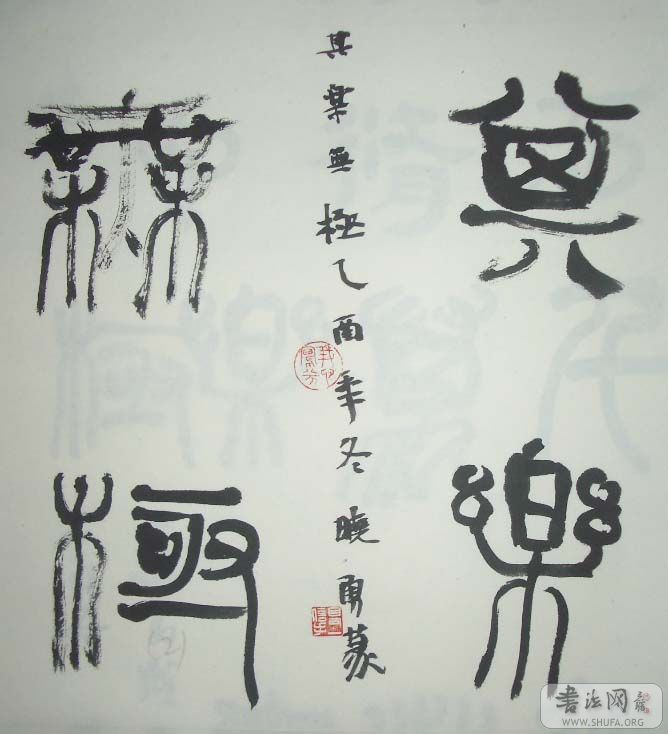 其樂
其樂無極乙酉年冬曉勇篆
無極
书法网
WWW.SHUFA.ORG